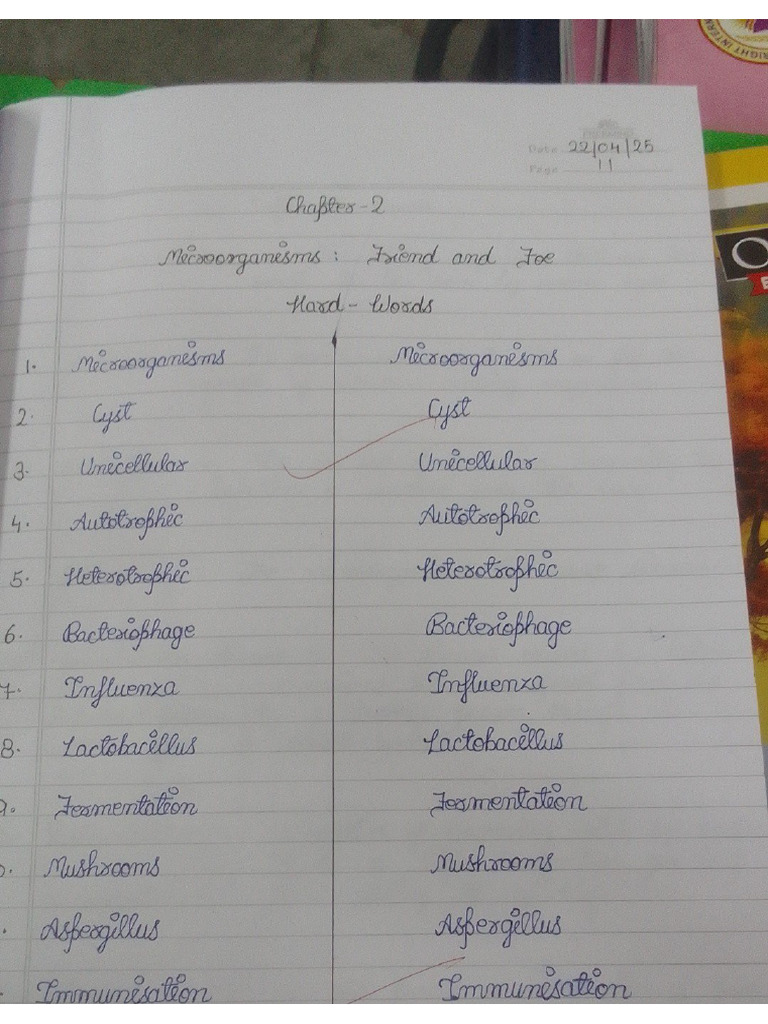 RIGHT INTERN
Date 22/04/25
Page 11
Chapter-2
Microorganisms : Friend and Foe
Hard - Words
1. Microorganisms Microorganisms
2. Cyst Cyst
3. Unicellular Unicellular
4. Autotrophic Autotrophic
5. Heterotrophic Heterotrophic
6. Bacteriophage Bacteriophage
7. Influenza Influenza
8. Lactobacillus Lactobacillus
9. Fermentation Fermentation
Mushrooms Mushrooms
Aspergillus Aspergillus
Immunisation Immunisation